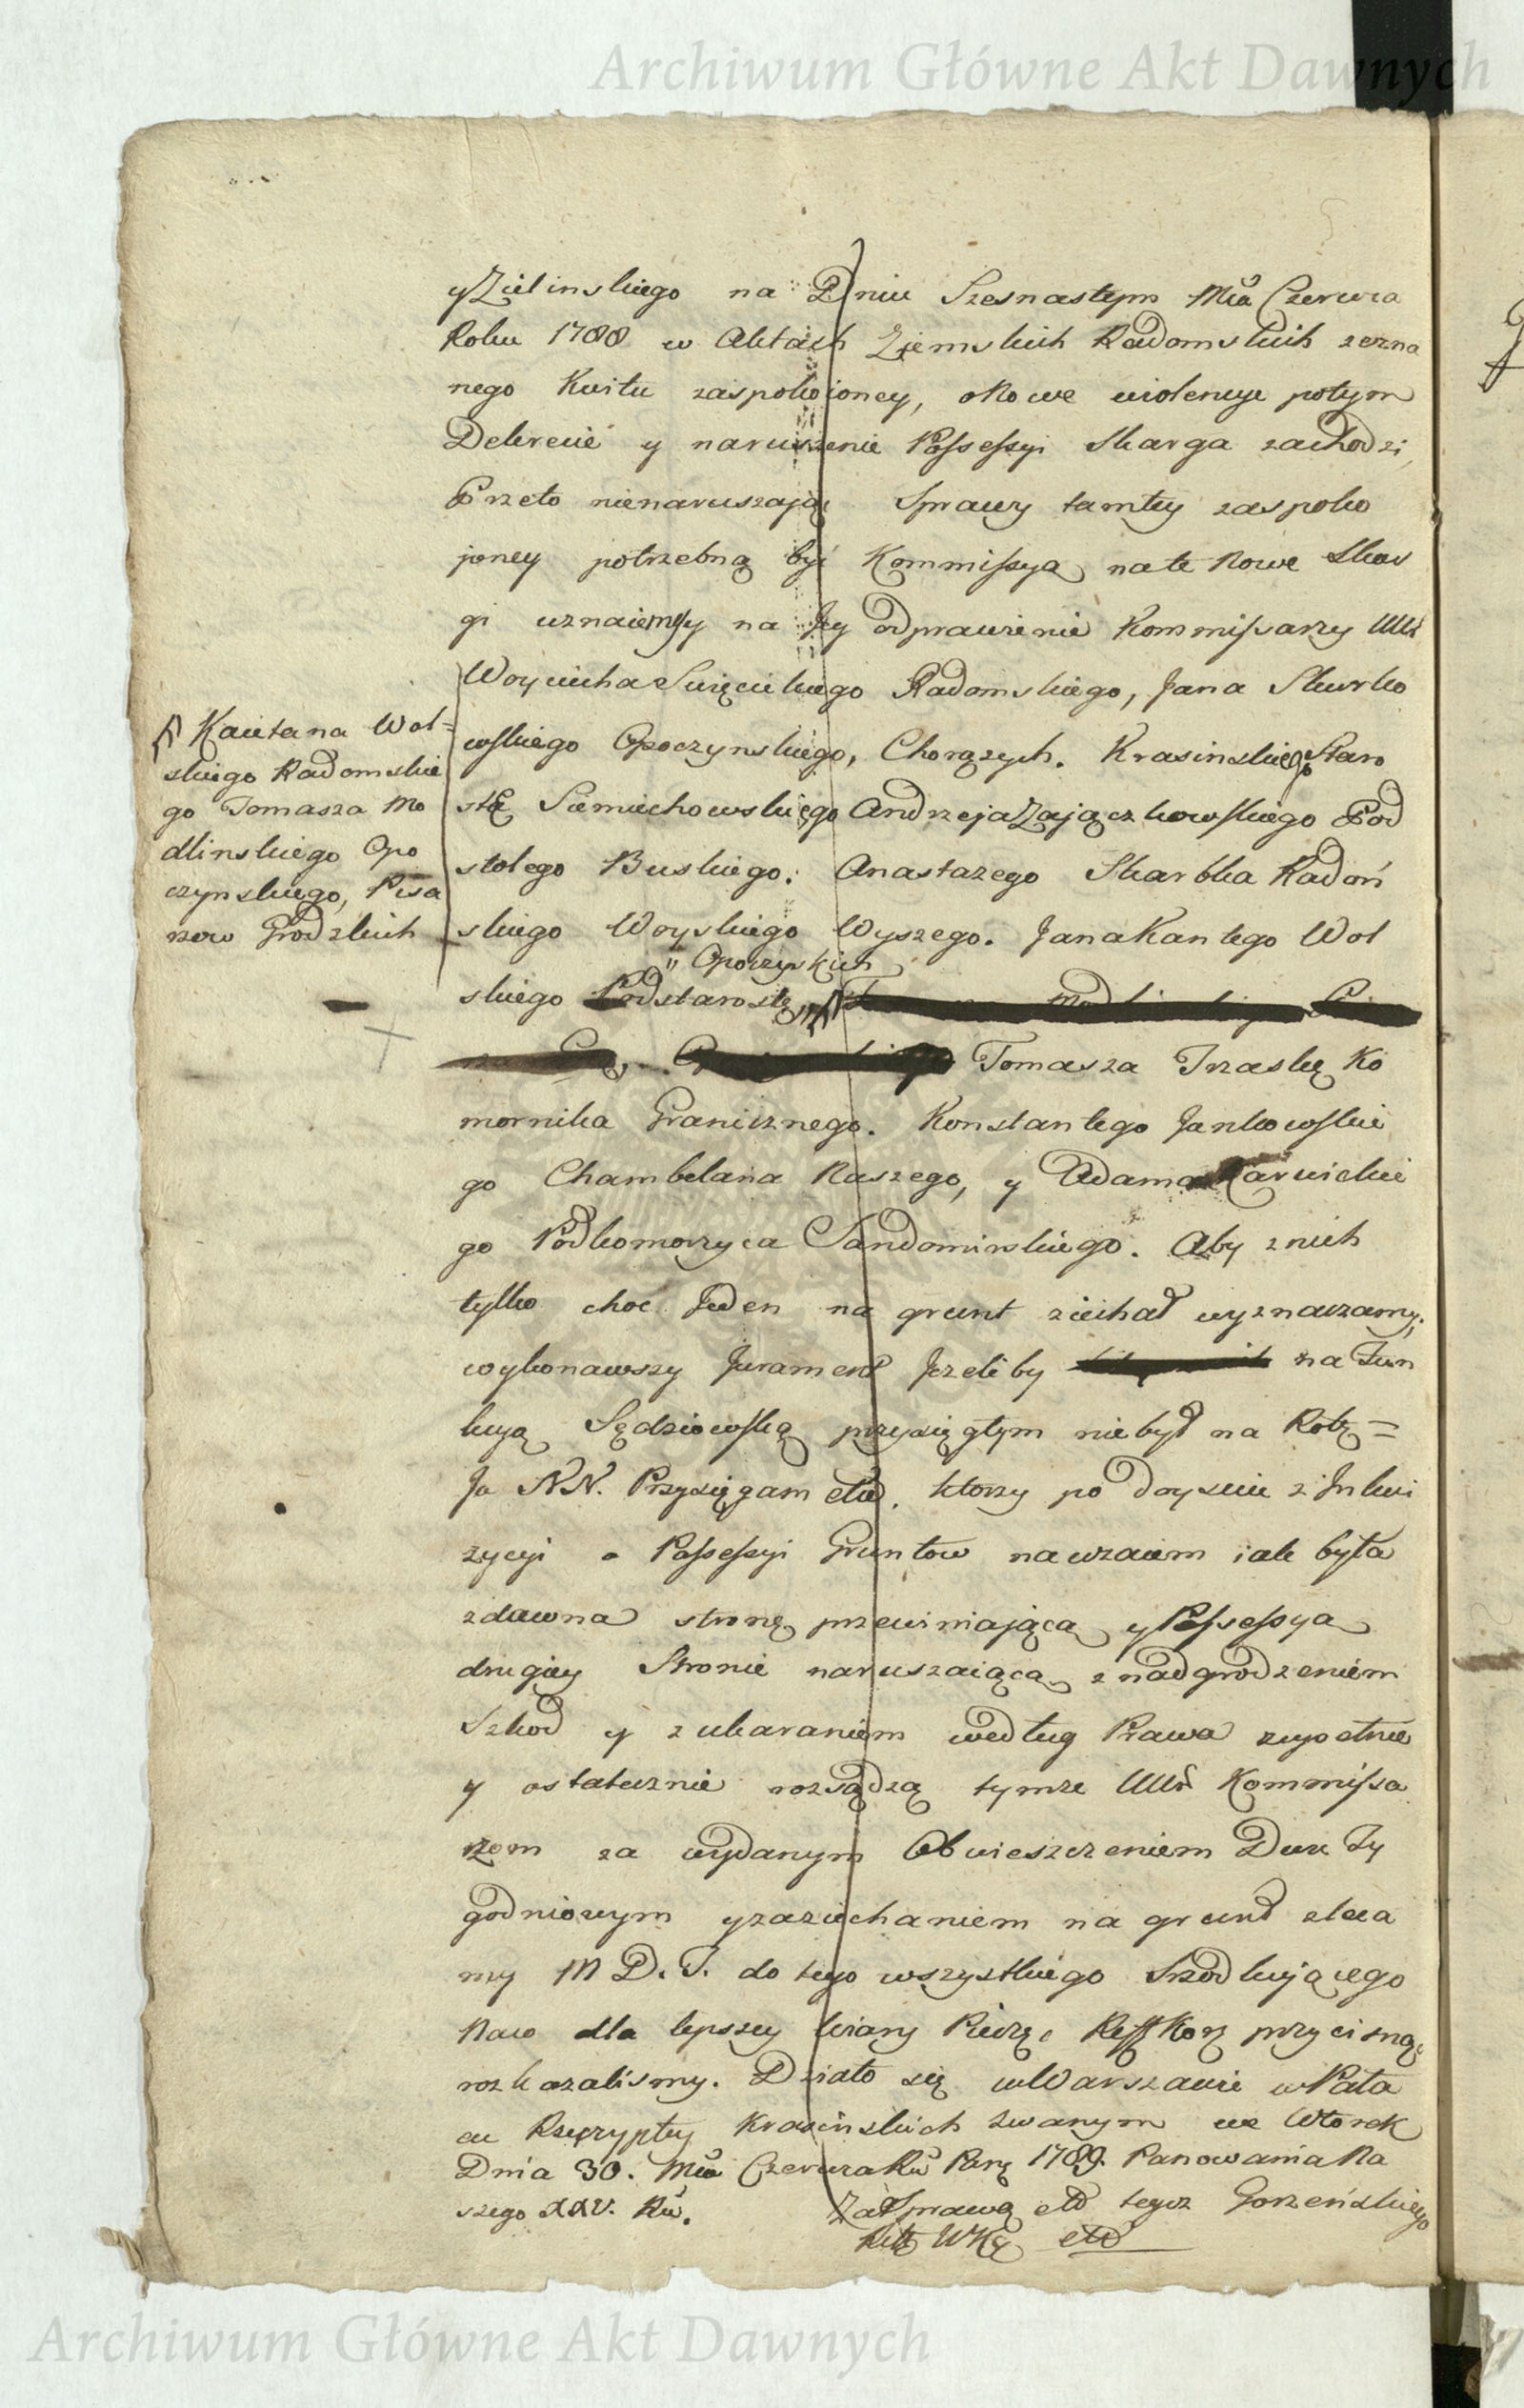 Archiwum Główne Akt Dawnych
y Zielinskiego na Dniu Szesnastym Mca Czerwca
Roku 1788 w Aktach Ziemskich Radomskich zezna
nego Kwitu zaspokoioney, o Nowe wiolencye potym
Dekrecie y naruszenie Possessyi Skarga zachodzi,
Przeto nienaruszaiąc Sprawy tamtey zaspoko
joney potrzebną być Kommissyą na te Nowe Skar
gi uznaiemy y na Jey odprawienie Kommissarzy UUr
Woyciecha Swięcickiego Radomskiego, Jana Skurko
wskiego Opoczynskiego, Chorążych. Krasinskiego Staro
stę Siemiechowskiego Andrzeja Zajączkowskiego Pod
stolego Buskiego. Anastazego Skarbka Radom
skiego Woyskiego Wyszego. Jana Kantego Wol
" Opoczynskich
skiego Podstarostę
Tomasza Trzaskę Ko
mornika Granicznego. Konstantego Jankowskie
go Chambelana Naszego, y Adama Karwickie
go Podkomorzyca Sandomirskiego. Aby z nich
tylko choć Jeden na grunt ziechał wyznaczamy,
wykonawszy Jurament Jezeliby na Fun
kcyą Sędziowską przysięgłym niebył na Rotę =
Ja NN. Przysięgam etc. ktorzy po doysciu z Inkwi
zycyi o Possessyi Gruntow nawzaiem iak była
zdawna stronę przewiniającą y Possessyą
drugiey Stronie naruszaiącą z nadgrodzeniem
Szkod y z ukaraniem według Prawa
y ostatecznie rozsądzą tymze UUr Kommissa
rzom za wydanym Obwieszczeniem Dwu Ty
godniowym y zaziechaniem na grunt zleca
my M D. T. do tego wszystkiego Srzodkującego
Naco dla lepszey Wiary Pieczęć Kor przycisnąć
rozkazalismy. Działo się w Warszawie w Pała
cu Rzeczyptey Krasinskich zwanym we Wtorek
Dnia 30. Mca Czerwca Ru Pang 1789. Panowania Na
szego XXV. Ru.
Za Sprawą etc tegoz Gorzenskiego
WKg etc
Kaietana Wol=
skiego Radomskie
go Tomasza Mo
dlinskiego Opo
czynskiego, Pisa
rzow Grodzkich
Archiwum Główne Akt Dawnych